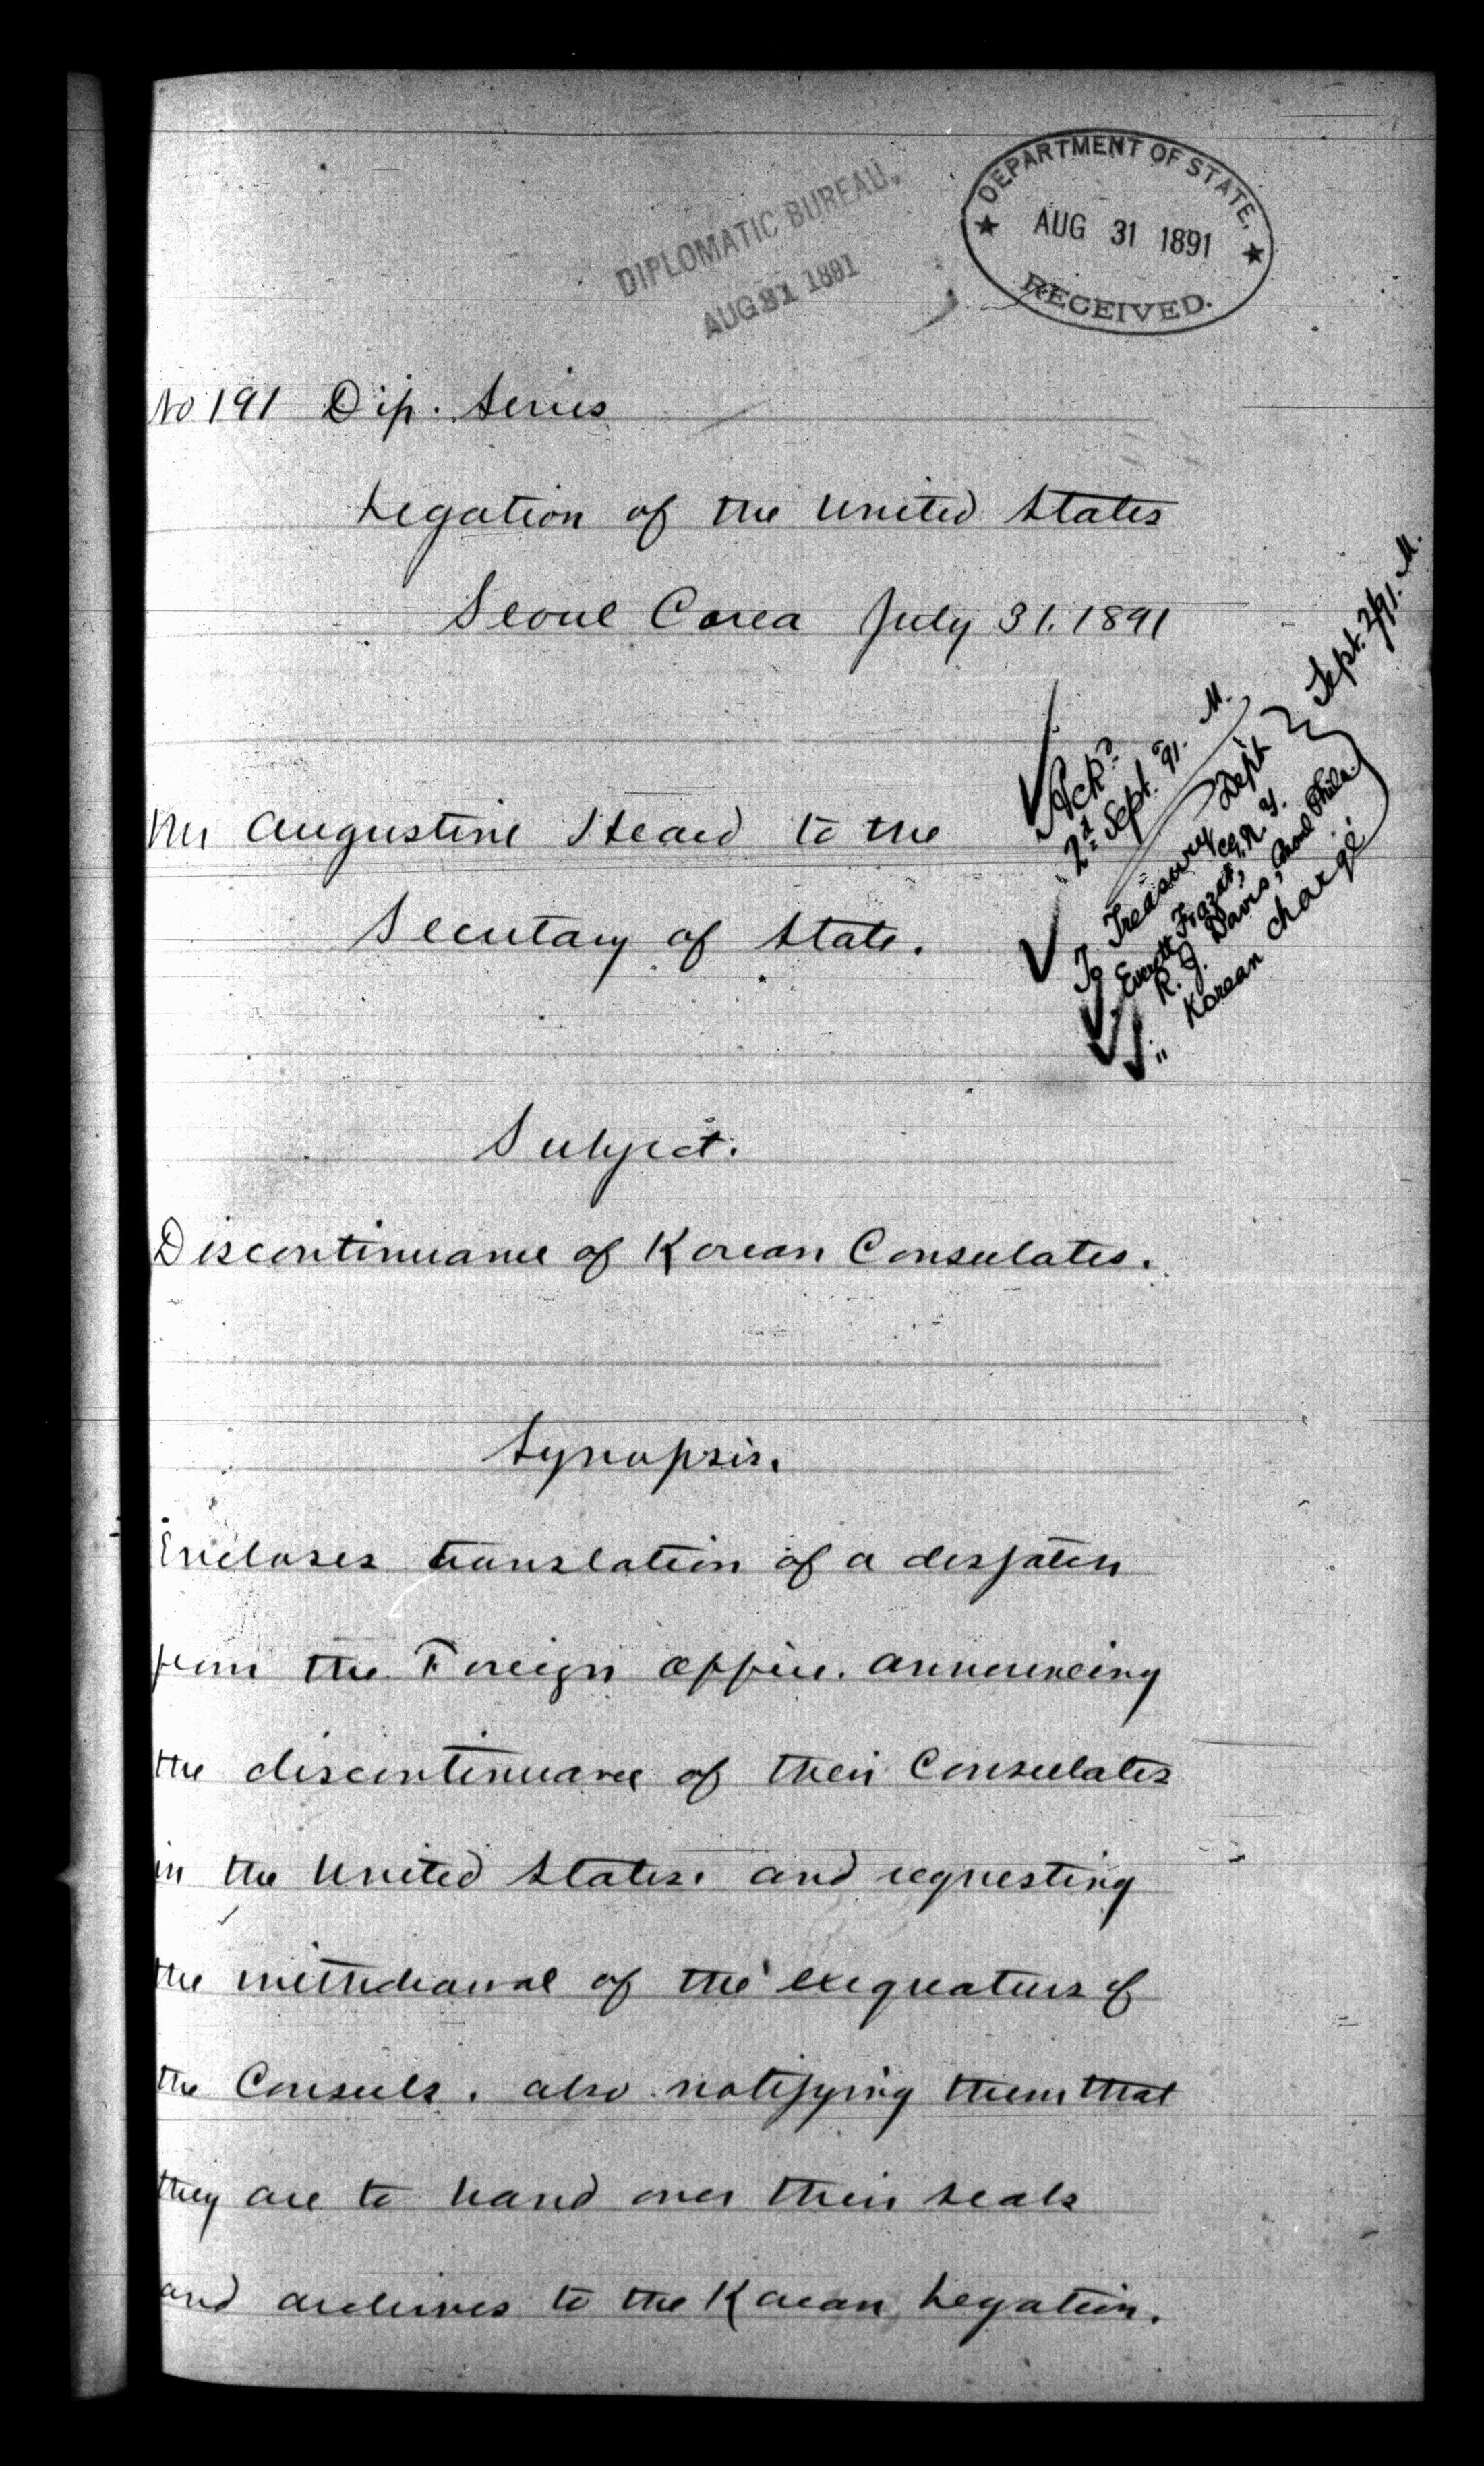 DIPLOMATIC BUREAU.
AUG 31 1891
DEPARTMENT OF STATE,
AUG 31 1891
RECEIVED.
No 191 Dip. Series
Legation of the United States
Seoul Corea July 31. 1891
Ackd
2d Sept. '91. M.
To Treasury Dept
Everett Frazar,
R. J. Davis, Phila.
" Korean chargé
Sept. 2/91. M.
Mr Augustine Heard to the
Secretary of State.
Subject.
Discontinuance of Korean Consulates.
Synopsis.
Encloses translation of a dispatch
from the Foreign office. announcing
the discontinuance of their Consulates
in the United States. and requesting
the withdrawal of the exequaturs of
the Consuls. also notifying them that
they are to hand over their seals
and archives to the Korean Legation.